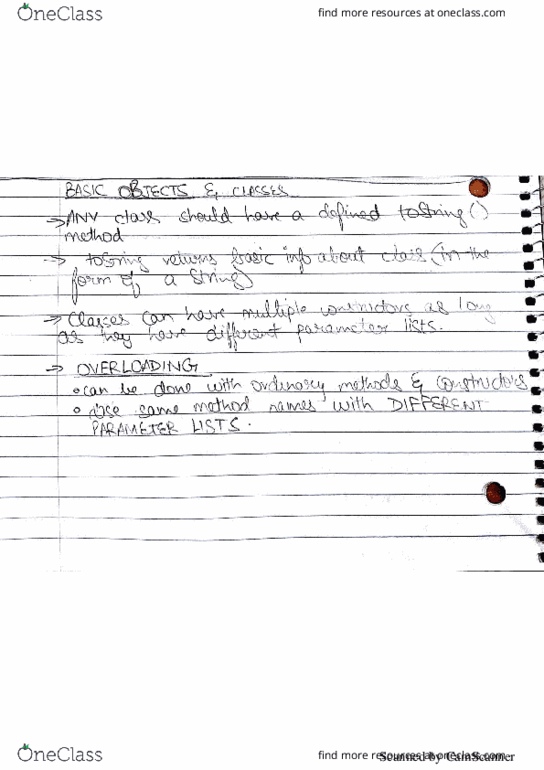 OneClass
find more resources at oneclass.com
BASIC OBJECTS & CLASSES
→ ANY class should have a defined toString()
method
→ toString returns basic info about class (in the
form of a String)
→ Classes can have multiple constructors as long
as they have different parameter lists.
→ OVERLOADING
• can be done with ordinary methods & constructors
• use same method names with DIFFERENT
PARAMETER LISTS.
OneClass
find more resources at oneclass.com
Scanned by CamScanner